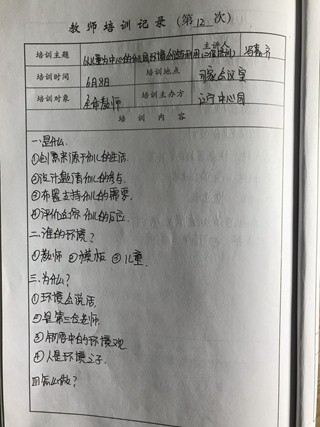 教师培训记录（第12次）
培训主题 以儿童为中心的幼儿园环境创设与利用 主讲人
培训时间 6月8日 培训地点 会议室
培训对象 全体教师 培训主办方 中心园
培训内容
一.是什么.
①创意来源于幼儿的生活.
②设计邀请幼儿的参与.
③布置支持幼儿的需要.
④评价在于幼儿的反应.
二.谁的环境？
①教师 ②模板 ③儿童.
三.为什么？
①环境会说话.
②是第三位老师.
③制度中的环境观.
④人是环境之子.
四.怎么做？